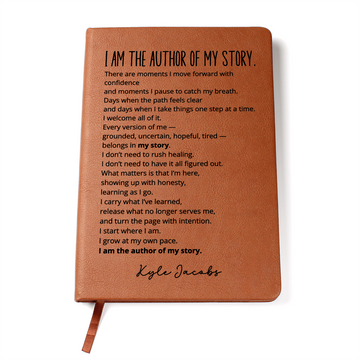 I AM THE AUTHOR OF MY STORY.
There are moments I move forward with
confidence
and moments I pause to catch my breath.
Days when the path feels clear
and days when I take things one step at a time.
I welcome all of it.
Every version of me —
grounded, uncertain, hopeful, tired —
belongs in my story.
I don't need to rush healing.
I don't need to have it all figured out.
What matters is that I'm here,
showing up with honesty,
learning as I go.
I carry what I've learned,
release what no longer serves me,
and turn the page with intention.
I start where I am.
I grow at my own pace.
I am the author of my story.
Kyle Jacobs